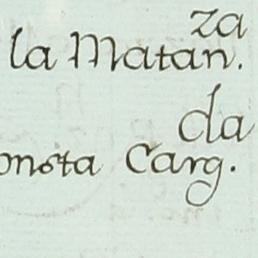 la Matan.za
onsta Carg.da